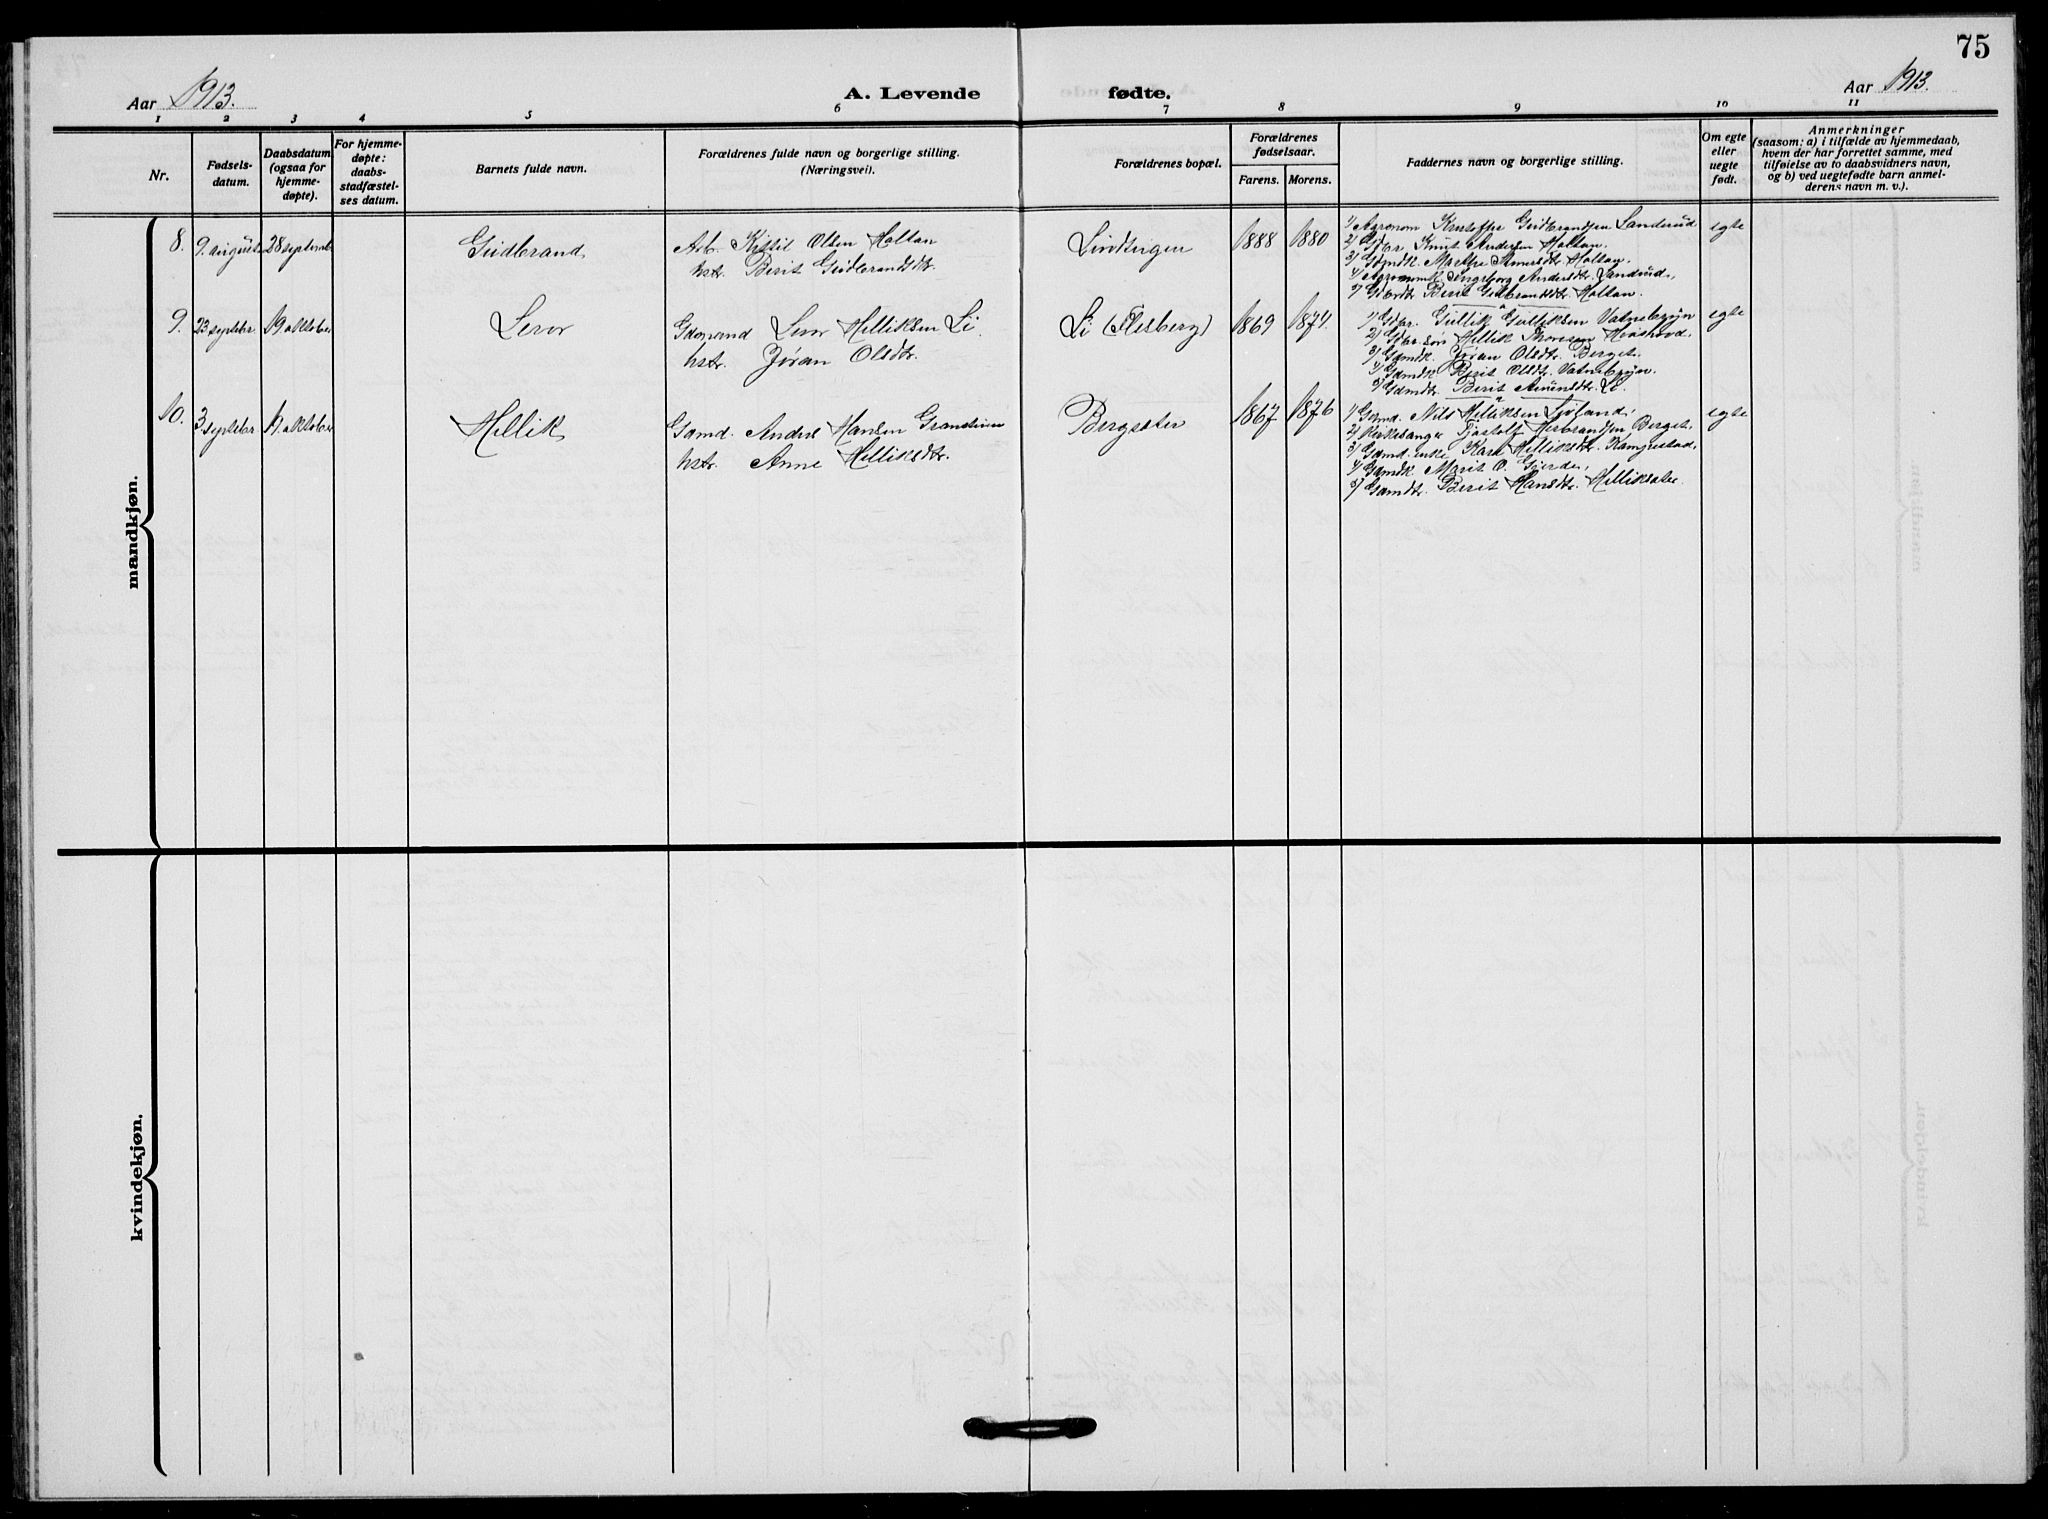 75
Aar 1913.
A. Levende
fødte.
Aar 1913.
1 2 3 4 5 6 7 8 9 10 11
Nr.
Fødsels-
datum.
Daabsdatum
(ogsaa for
hjemme-
døpte).
For hjemme-
døpte:
daabs-
stadfæstel-
ses datum.
Barnets fulde navn.
Forældrenes fulde navn og borgerlige stilling.
(Næringsvei).
Forældrenes bopæl.
Forældrenes
fødselsaar.
Farens. Morens.
Faddernes navn og borgerlige stilling.
Om egte
eller
uegte
født.
Anmerkninger
(saasom: a) i tilfælde av hjemmedaab,
hvem der har forrettet samme, med
tilføielse av to daabsvidners navn,
og b) ved uegtefødte barn anmel-
derens navn m. v.).
mandkjøn.
8. 9. august 28 septembr Gudbrand Arb. Kittil Olsen Holtan
hstr. Berit Gudbrandsdtr.
1888 1880
1) Agronom Kristoffer Gudbrandsen Sanderud
2) Gdbr Knut Andersen Holtan.
3) Gdmdk. Marthe Holtan.
4) Agronomk Ingeborg Andersdtr
5) Berit Gudbrandsdtr. Holtan.
egte
9. 23 septebr. 19 oktober Levor Gdmand Levor Helliksen Li
hstr. Jøran Olsdtr.
Li (Flesberg) 1869 1874.
1) Gdbr. Gullik Gulliksen Vatnebryn
2) Gdbr søn Hellik Thoresen
3) Gdmdk. Jøran Olsdtr. Berget.
4) Gdmdk Berit Olsdtr. Vatnebryn.
5) Gdmdtr. Berit Amundsdtr. Li.
egte
10. 3 septebr 19 oktober Hellik Gdmd. Andres Hansen
hstr. Anne Helliksdtr.
Bergsæter 1867 1876
1) Gdmd. Nils Helliksen Ljøland,
2) Kirkesanger Tjostolf Herbrandsen Berget.
3) Gdmd. enke Kari Helliksdtr.
4) Gdmdk Marit O. Gjerde,
5) Gdmdtr. Berit Hansdtr. Helliksæter.
egte
kvindekjøn.